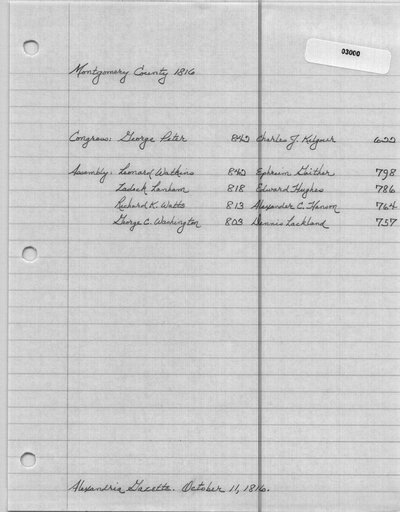 03000
Montgomery County 1816
Congress: George Peter 842 Charles J. Kilgour 622
Assembly: Leonard Watkins 842 Ephraim Gaither 798
Zadock Lanham 818 Edward Hughes 786
Richard K. Watts 813 Alexander C. Hanson 764
George C. Washington 803 Dennis Lackland 757
Alexandria Gazette. October 11, 1816.